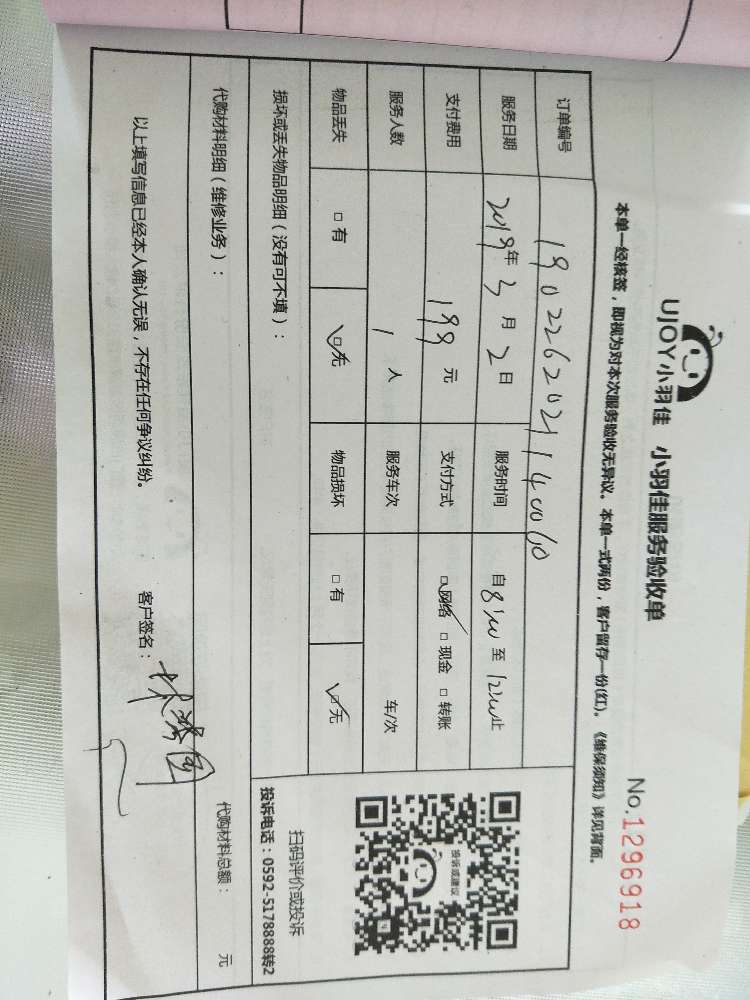 UJOY小羽佳 小羽佳服务验收单
No.1296918
本单一经核签，即视为对本次服务验收无异议。本单一式两份，客户留存一份(红)。《维保须知》详见背面。
订单编号 1902262021140060
服务日期 2019年3月2日 服务时间 自8:00至12:00止
支付费用 199元 支付方式 □网络 □现金 □转账
服务人数 1人 服务车次 车/次
物品丢失 □有 □无 物品损坏 □有 □无
投诉或建议
扫码评价或投诉
投诉电话：0592-5178888转2
损坏或丢失物品明细（没有可不填）：
代购材料明细（维修业务）： 代购材料总额： 元
以上填写信息已经本人确认无误，不存在任何争议纠纷。 客户签名：